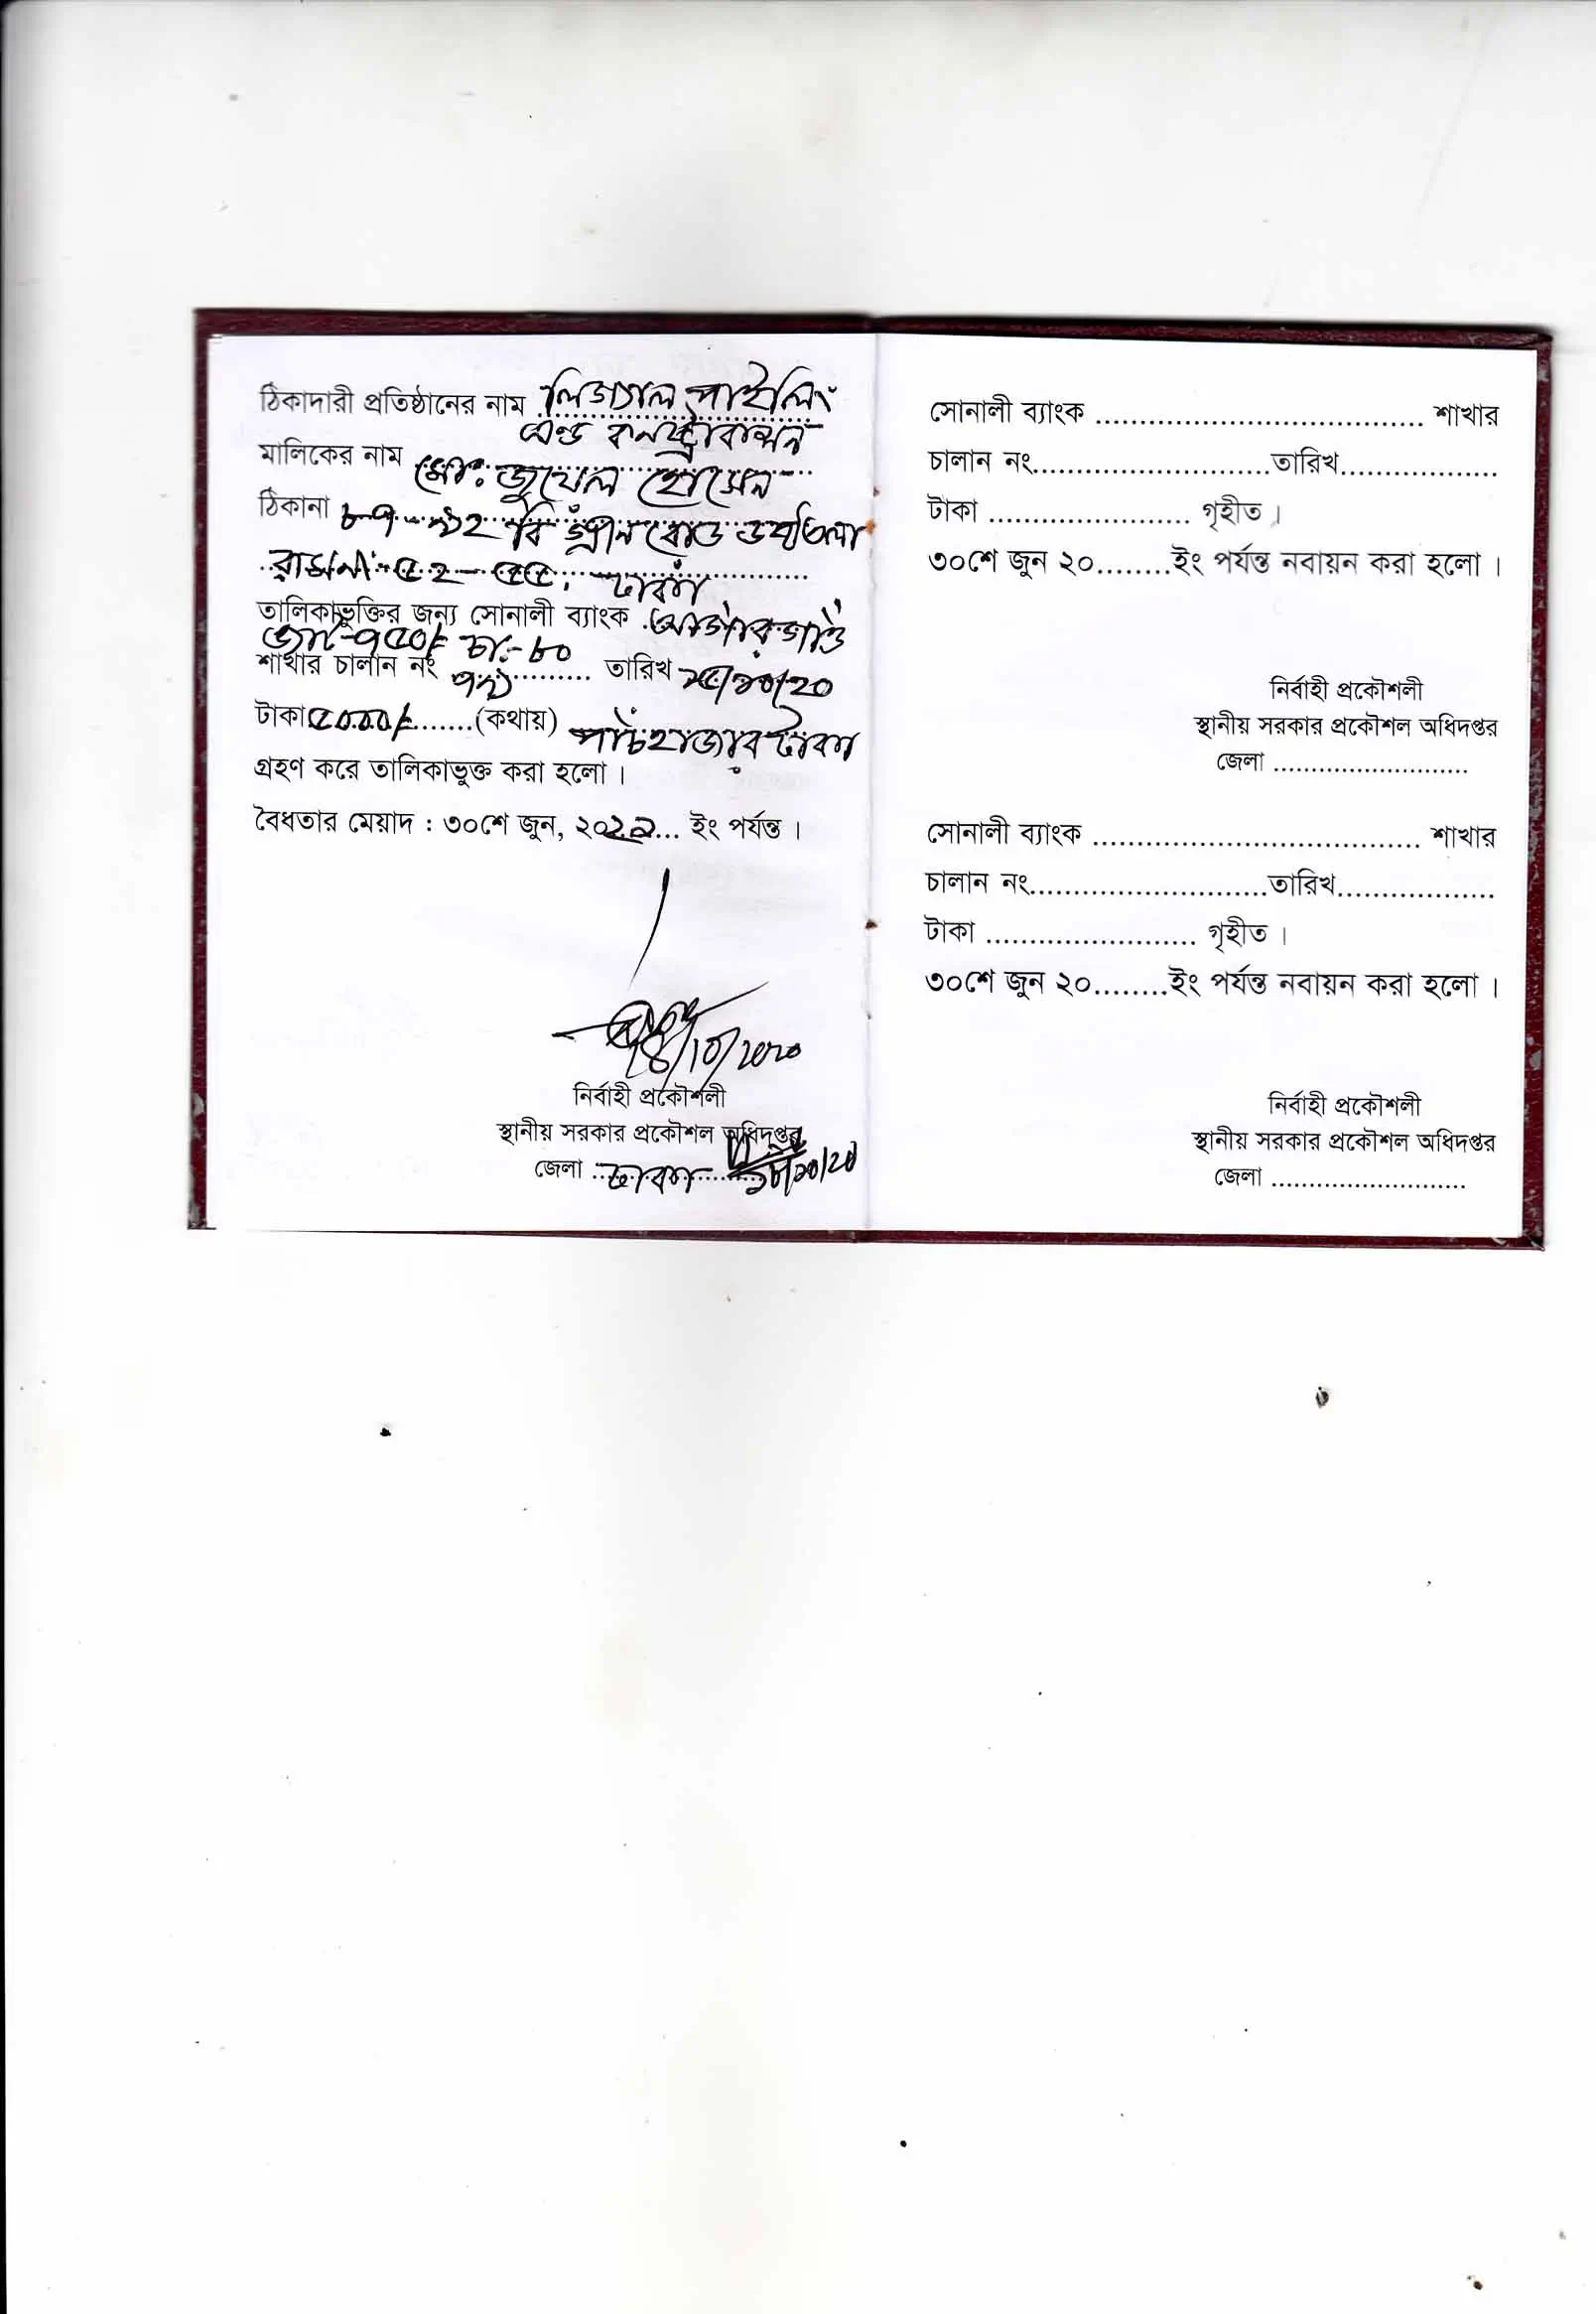 ঠিকাদারী প্রতিষ্ঠানের নাম লিগ্যাল পাইলিং
এন্ড কনস্ট্রাকশন
মালিকের নাম মো: জুয়েল হোসেন
ঠিকানা ৮৭ বি গ্রীন রোড
৫২-৫৫, ঢাকা
তালিকাভুক্তির জন্য সোনালী ব্যাংক আগারগাঁও
চা:-৮০
শাখার চালান নং ৭১ তারিখ ১৫/১০/২০
টাকা ৫০০০/= (কথায়) পাঁচহাজার টাকা
গ্রহণ করে তালিকাভুক্ত করা হলো ।
বৈধতার মেয়াদ : ৩০শে জুন, ২০২১... ইং পর্যন্ত ।
১৮/10/2020
নির্বাহী প্রকৌশলী
স্থানীয় সরকার প্রকৌশল অধিদপ্তর
জেলা ঢাকা ১৮/১০/২০
সোনালী ব্যাংক ..................................... শাখার
চালান নং...........................তারিখ..................
টাকা ....................... গৃহীত ।
৩০শে জুন ২০........ইং পর্যন্ত নবায়ন করা হলো ।
নির্বাহী প্রকৌশলী
স্থানীয় সরকার প্রকৌশল অধিদপ্তর
জেলা ..........................
সোনালী ব্যাংক ..................................... শাখার
চালান নং...........................তারিখ..................
টাকা ........................ গৃহীত ।
৩০শে জুন ২০........ইং পর্যন্ত নবায়ন করা হলো ।
নির্বাহী প্রকৌশলী
স্থানীয় সরকার প্রকৌশল অধিদপ্তর
জেলা ..........................